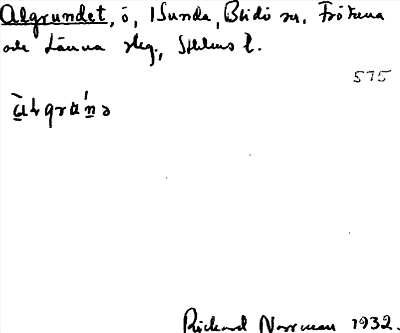 Algrundet, ö, i Sunda, Blidö sn, Frötuna
och Länna skg., Sthlms l.
575
Rickard Norrman 1932.